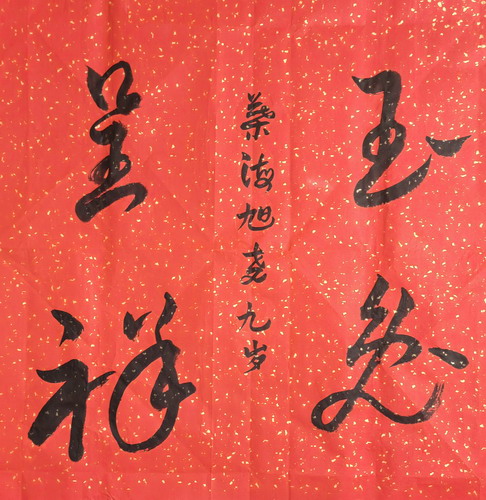 玉兔
呈祥
海旭九岁